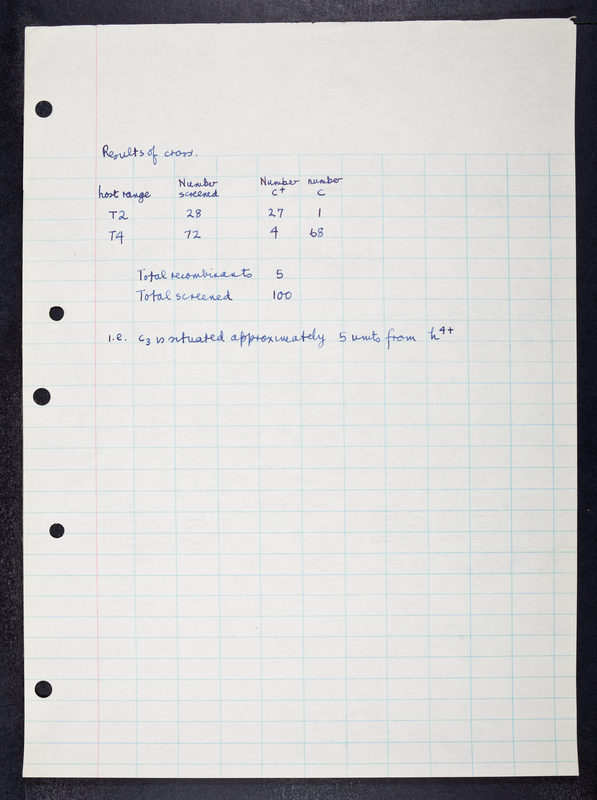 Results of cross.
host range Number screened Number c+ number c
T2 28 27 1
T4 72 4 68
Total recombinants 5
Total screened 100
i.e. c₃ is situated approximately 5 units from h⁴⁺